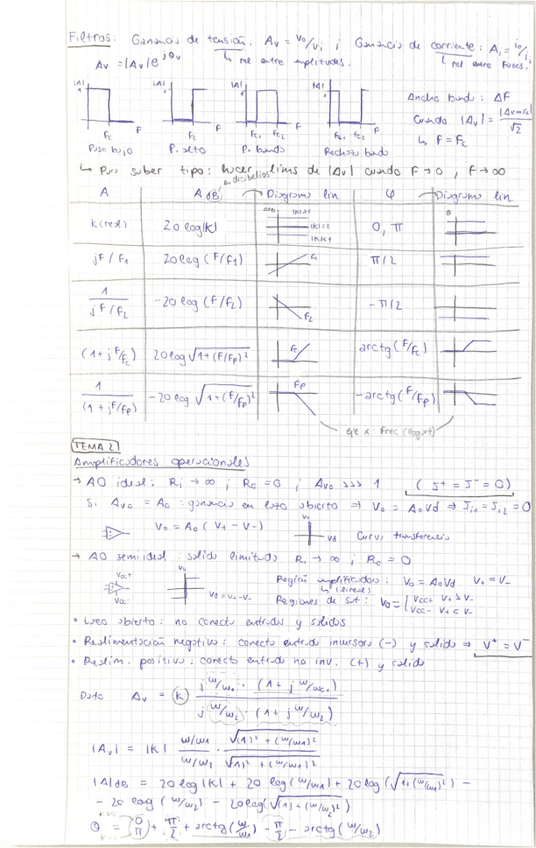 Filtros: Ganancia de tensión. Av = Vo/Vi ; Ganancia de corriente: Ai = io/ii
Av = |Av|e^jθv ↳ rel entre amplitudes. ↳ rel entre fases.
|A| |A| |A| |A| Ancho banda: ΔF
1 Cuando |Av| = |Avmáx|/√2
Fc F Fc F Fc1 Fc2 F Fc1 Fc2 F ↳ F = Fc
Paso bajo P. alto P. banda Rechazo banda
↳ Para saber tipo: hacer lims de |Av| cuando F→0, F→∞
A A dB en decibelios → Diagrama lin φ → Diagrama lin
k (real) 20 log|k| |k|>1 |k|=1 |k|<1 0, π θ
jF/F1 20 log (F/F1) F1 π/2
1/(jF/F2) -20 log (F/F2) F2 -π/2
(1+jF/Fc) 20 log √1+(F/Fp)² Fc arctg(F/Fc)
1/(1+jF/Fp) -20 log √1+(F/Fp)² Fp -arctg(F/Fp)
eje x: Frec (logarit)
TEMA 2
Amplificadores operacionales
→ AO ideal: Ri → ∞ ; Ro = 0 ; Avo >>> 1 (I+ = I- = 0)
Si Avo = Ao: ganancia en lazo abierto ⇒ Vo = AoVd ⇒ Ii1 = Ii2 = 0
Vo = Ao (V+ - V-) Vo Vd Curva transferencia
→ AO semiideal: salida limitada Ri → ∞ ; Ro = 0
Vcc+ Vo Región amplificadora: Vo = AoVd V+ = V-
↳ (lineal)
Vcc- Vd = V+ - V- Regiones de sat: Vo = { Vcc+ V+ > V-
Vcc- V+ < V-
• Lazo abierto: no conecto entradas y salidas
• Realimentación negativa: conecto entrada inversora (-) y salida ⇒ V+ = V-
• Realim. positiva: conecto entrada no inv. (+) y salida
Dato Av = (k) j w/w1 · (1 + j w/wc1) / j (w/w2) · (1 + j w/w2)
|Av| = |k| w/w1 / w/w2 · √(1)² + (w/w1)² / √(1)² + (w/w2)²
|A|dB = 20 log |k| + 20 log (w/w1) + 20 log (√1+(w/w1)²) -
- 20 log (w/w2) - 20 log (√(1)+(w/w2)²)
θ = 0 π + π/2 + arctg(w/w1) - π/2 - arctg(w/w2)